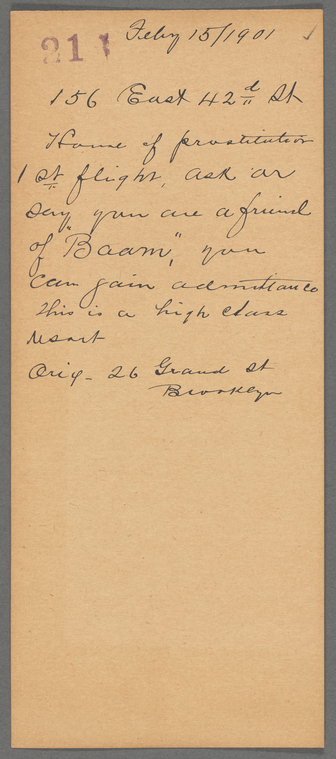 Feby 15/1901
211
156 East 42d St
House of prostitution
1st flight, ask or
say you are a friend
of "Baam", you
can gain admittance
this is a high class
resort
Orig - 26 Grand St
Brooklyn